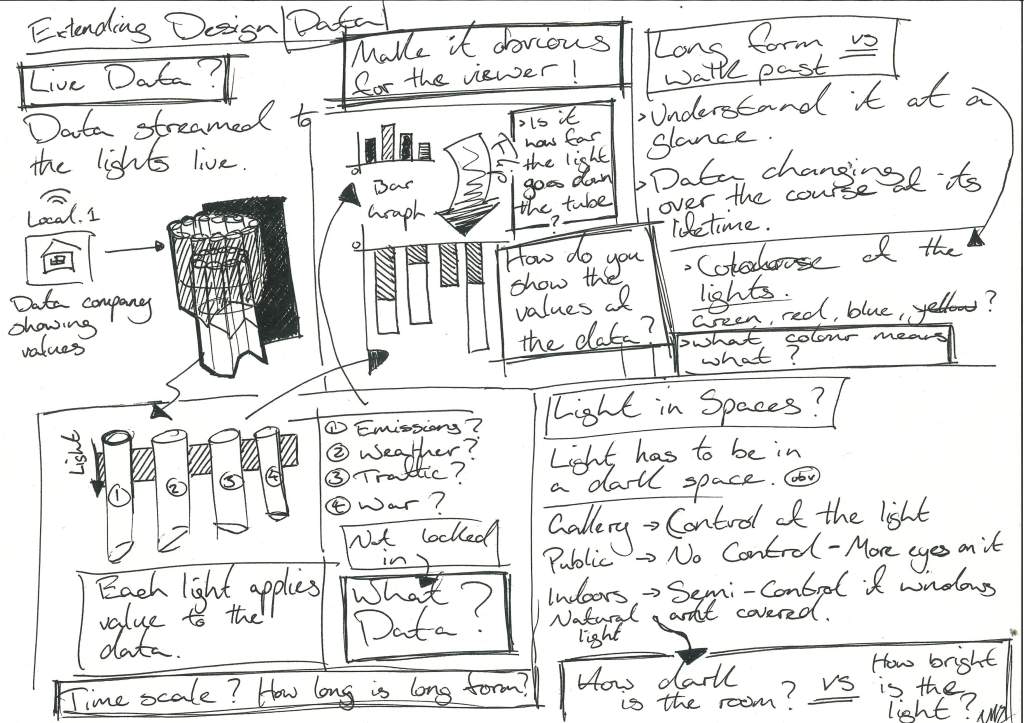 Extending Design Data
Live Data?
Data streamed to
the lights live.
Local. 1
Data company
showing
values
Make it obvious
for the viewer!
Bar
Graph
>Is it
how far
the light
goes down
the tube
?
How do you
show the
values of
the data?
Long form vs
walk past
>Understand it at a
glance.
>Data changing
over the course of its
lifetime.
> of the
lights.
Green, red, blue, yellow?
>what colour means
what?
Light
1
2
3
4
① Emissions?
② Weather?
③ Traffic?
④ War?
Not locked
in
What
Data?
Each light applies
value to the
data.
Time scale? How long is long form?
Light in Spaces?
Light has to be in
a dark space. obv
Gallery → Control of the light
Public → No Control - More eyes on it
Indoors → Semi-Control if windows
arnt covered.
Natural
light
How dark
is the room?
vs
How bright
is the
light?